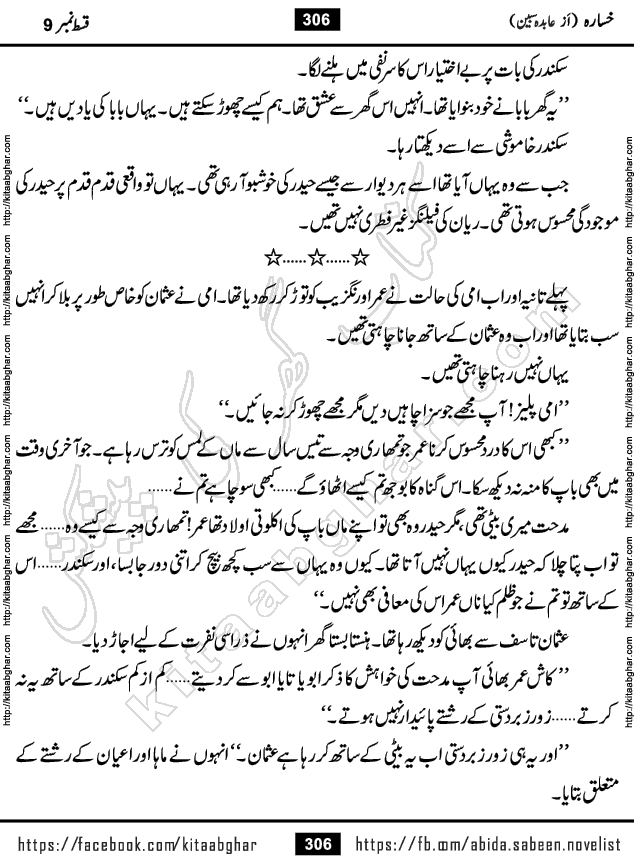 خسارہ (از عابدہ سبین) 306 قسط نمبر 9
سکندر کی بات پر بے اختیار اس کا سر نفی میں ہلنے لگا۔
’’یہ گھر بابا نے خود بنوایا تھا۔ انہیں اس گھر سے عشق تھا۔ ہم کیسے چھوڑ سکتے ہیں۔ یہاں بابا کی یادیں ہیں۔‘‘
سکندر خاموشی سے اسے دیکھتا رہا۔
جب سے وہ یہاں آیا تھا اسے ہر دیوار سے جیسے حیدر کی خوشبو آ رہی تھی۔ یہاں تو واقعی قدم قدم پر حیدر کی
موجودگی محسوس ہوتی تھی۔ ریان کی فیلنگز غیر فطری نہیں تھیں۔
☆......☆......☆
پہلے تانیہ اور اب امی کی حالت نے عمر اورنگزیب کو توڑ کر رکھ دیا تھا۔ امی نے عثمان کو خاص طور پر بلا کر انہیں
سب بتایا تھا اور اب وہ عثمان کے ساتھ جانا چاہتی تھیں۔
یہاں نہیں رہنا چاہتی تھیں۔
’’امی پلیز! آپ مجھے جو سزا چاہیں دیں مگر مجھے چھوڑ کر نہ جائیں۔‘‘
’’کبھی اس کا درد محسوس کرنا عمر جو تمھاری وجہ سے تیس سال سے ماں کے لمس کو ترس رہا ہے۔ جو آخری وقت
میں بھی باپ کا منہ نہ دیکھ سکا۔ اس گناہ کا بوجھ تم کیسے اٹھاؤ گے......کبھی سوچا ہے تم نے......
مدحت میری بیٹی تھی، مگر حیدر وہ بھی تو اپنے ماں باپ کی اکلوتی اولاد تھا عمر! تمھاری وجہ سے کیسے وہ...... مجھے
تو اب پتا چلا کہ حیدر کیوں یہاں نہیں آتا تھا۔ کیوں وہ یہاں سے سب کچھ بیچ کر اتنی دور جا بسا، اور سکندر......اس
کے ساتھ تو تم نے جو ظلم کیا ناں عمر اس کی معافی بھی نہیں۔‘‘
عثمان تاسف سے بھائی کو دیکھ رہا تھا۔ ہنستا بستا گھر انہوں نے ذرا سی نفرت کے لیے اجاڑ دیا۔
’’کاش عمر بھائی آپ مدحت کی خواہش کا ذکر ابو یا تایا ابو سے کر دیتے......کم از کم سکندر کے ساتھ یہ نہ
کرتے......زور زبردستی کے رشتے پائیدار نہیں ہوتے۔‘‘
’’اور یہ ہی زور زبردستی اب یہ بیٹی کے ساتھ کر رہا ہے عثمان۔‘‘ انہوں نے ماہا اور اعیان کے رشتے کے
متعلق بتایا۔
https://facebook.com/kitaabghar 306 https://fb.com/abida.sabeen.novelist
http://kitaabghar.com http://kitaabghar.com http://kitaabghar.com http://kitaabghar.com http://kitaabghar.com http://kitaabghar.com
http://kitaabghar.com http://kitaabghar.com http://kitaabghar.com http://kitaabghar.com http://kitaabghar.com http://kitaabghar.com
کتاب گھر کی پیشکش
kitaabghar.com